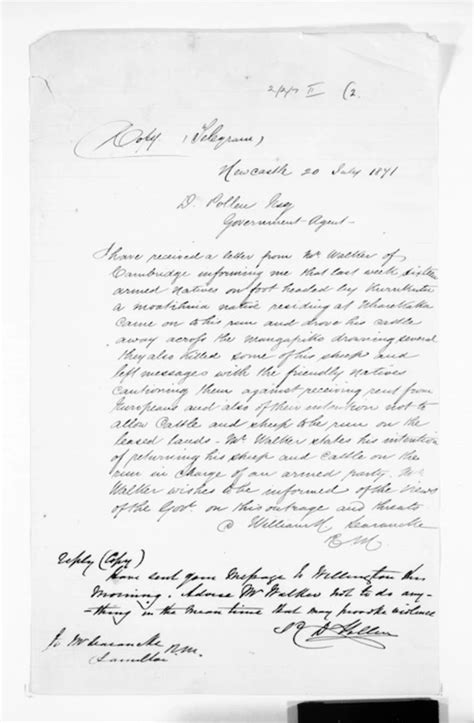 2/2/7 II (2.
Copy (Telegram)
Newcastle 20 July 1871
D. Pollen Esq
Government Agent
I have received a letter from Mr Walker of
Cambridge informing me that last week sixteen
armed natives on foot headed by
a native residing at Wharetaka
came on to his run and drove his cattle
away across the Mangapiko drowning several
they also killed some of his sheep and
left messages with the friendly natives
cautioning them against receiving rent from
Europeans and also of their intention not to
allow Cattle and sheep to be run on the
leased lands - Mr Walker states his intention
of returning his sheep and cattle on the
run in charge of an armed party. Mr
Walker wishes to be informed of the views
of the Govt on this outrage and threats
William Searancke
R.M.
Reply (Copy)
Have sent your Message to Wellington this
Morning. Advise Mr Walker not to do any-
thing in the mean time that may provoke violence
D Pollen
To W Searancke R.M.
Hamilton